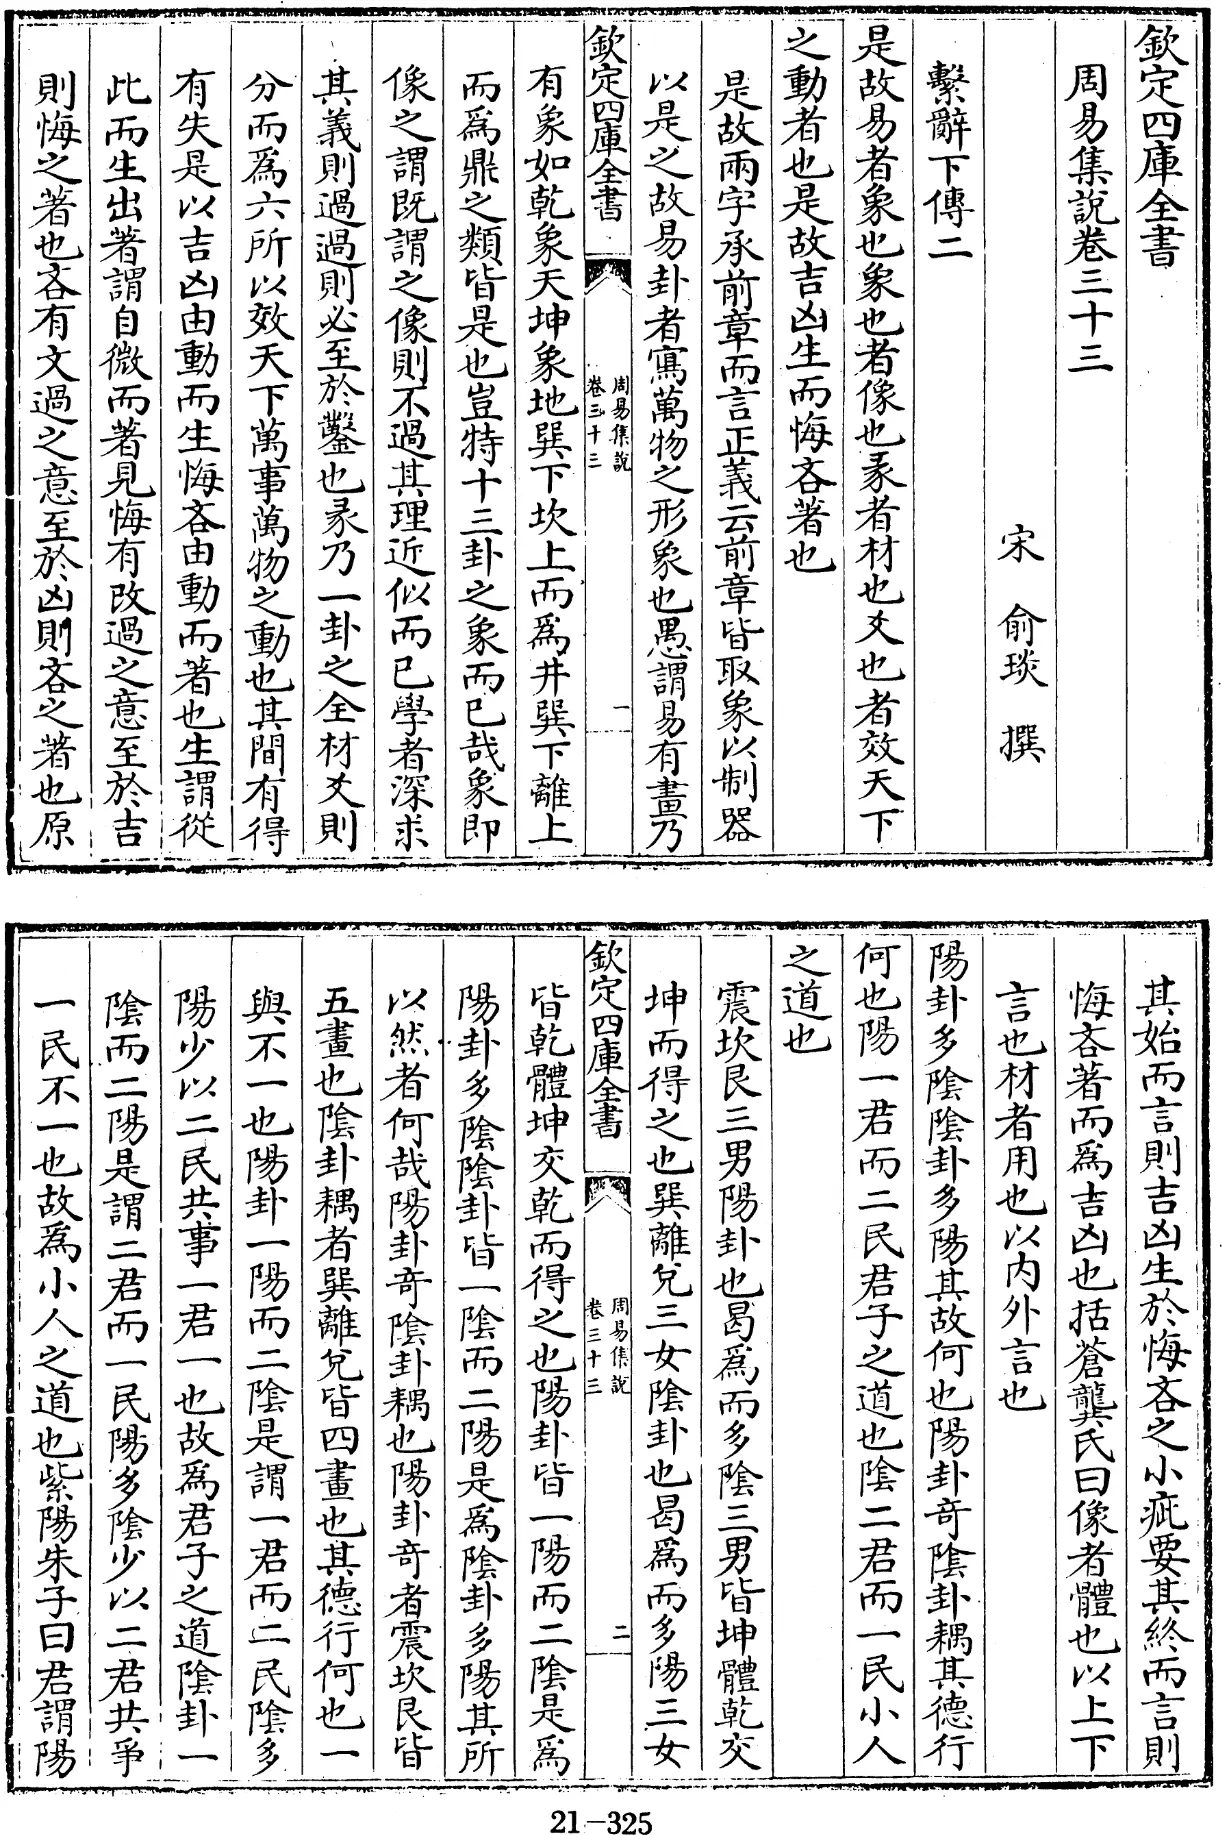 欽定四庫全書
周易集說卷三十三
宋 俞琰 撰
繫辭下傳二
是故易者象也象也者像也彖者材也爻也者效天下
之動者也是故吉凶生而悔吝著也
是故兩字承前章而言正義云前章皆取象以制器
以是之故易卦者寫萬物之形象也愚謂易有畫乃
欽定四庫全書
周易集說
卷三十三
一
有象如乾象天坤象地巽下坎上而為井巽下離上
而為鼎之類皆是也豈特十三卦之象而已哉象即
像之謂既謂之像則不過其理近似而已學者深求
其義則過過則必至於鑿也彖乃一卦之全材爻則
分而為六所以效天下萬事萬物之動也其間有得
有失是以吉凶由動而生悔吝由動而著也生謂從
此而生出著謂自微而著見悔有改過之意至於吉
則悔之著也吝有文過之意至於凶則吝之著也原
其始而言則吉凶生於悔吝之小疵要其終而言則
悔吝著而為吉凶也括蒼龔氏曰像者體也以上下
言也材者用也以內外言也
陽卦多陰陰卦多陽其故何也陽卦奇陰卦耦其德行
何也陽一君而二民君子之道也陰二君而一民小人
之道也
震坎艮三男陽卦也曷為而多陰三男皆坤體乾交
坤而得之也巽離兌三女陰卦也曷為而多陽三女
欽定四庫全書
周易集說
卷三十三
二
皆乾體坤交乾而得之也陽卦皆一陽而二陰是為
陽卦多陰陰卦皆一陰而二陽是為陰卦多陽其所
以然者何哉陽卦奇陰卦耦也陽卦奇者震坎艮皆
五畫也陰卦耦者巽離兌皆四畫也其德行何也一
與不一也陽卦一陽而二陰是謂一君而二民陰多
陽少以二民共事一君一也故為君子之道陰卦一
陰而二陽是謂二君而一民陽多陰少以二君共爭
一民不一也故為小人之道也紫陽朱子曰君謂陽
21-325